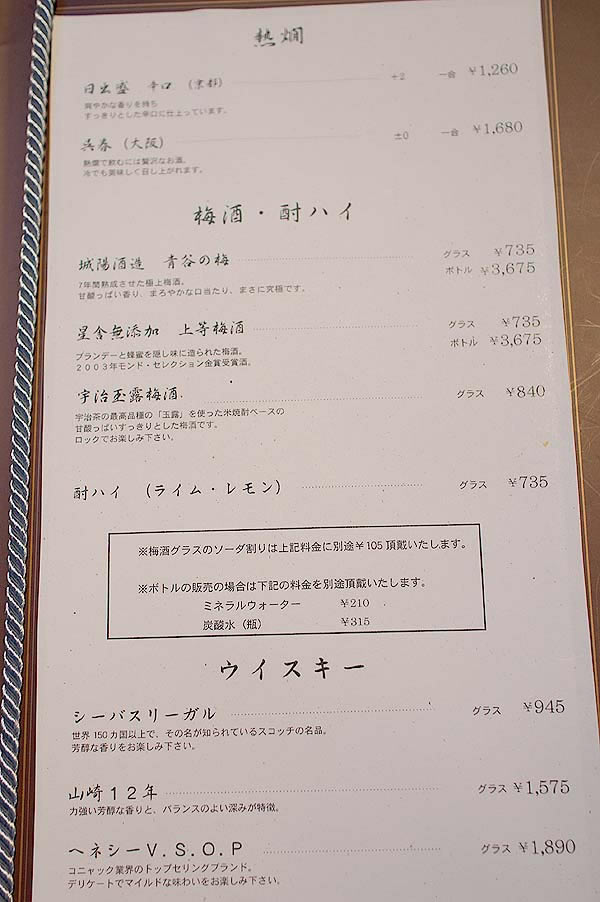 熱燗
日出盛 辛口 (京都) +2 一合 ¥1,260
爽やかな香りを持ち
すっきりとした辛口に仕上っています。
呉春 (大阪) ±0 一合 ¥1,680
熱燗で飲むには贅沢なお酒。
冷でも美味しく召し上がれます。
梅酒・酎ハイ
城陽酒造 青谷の梅 グラス ¥735
ボトル ¥3,675
7年間熟成させた極上梅酒。
甘酸っぱい香り、まろやかな口当たり、まさに究極です。
星舎無添加 上等梅酒 グラス ¥735
ボトル ¥3,675
ブランデーと蜂蜜を隠し味に造られた梅酒。
2003年モンド・セレクション金賞受賞酒。
宇治玉露梅酒 グラス ¥840
宇治茶の最高品種の「玉露」を使った米焼酎ベースの
甘酸っぱいすっきりとした梅酒です。
ロックでお楽しみ下さい。
酎ハイ (ライム・レモン) グラス ¥735
※梅酒グラスのソーダ割りは上記料金に別途¥105頂戴いたします。
※ボトルの販売の場合は下記の料金を別途頂戴いたします。
ミネラルウォーター ¥210
炭酸水(瓶) ¥315
ウイスキー
シーバスリーガル グラス ¥945
世界150カ国以上で、その名が知られているスコッチの名品。
芳醇な香りをお楽しみ下さい。
山崎12年 グラス ¥1,575
力強い芳醇な香りと、バランスのよい深みが特徴。
ヘネシーV.S.O.P グラス ¥1,890
コニャック業界のトップセリングブランド。
デリケートでマイルドな味わいをお楽しみ下さい。